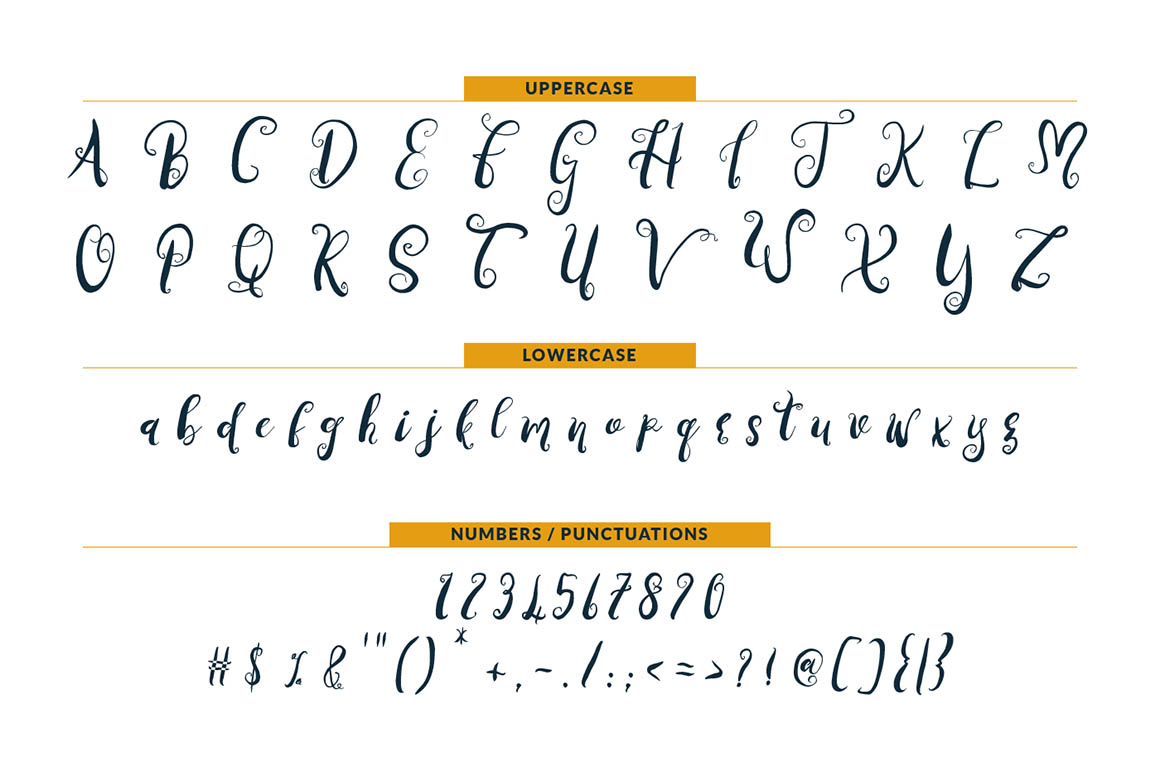 UPPERCASE
A B C D E F G H I J K L M
O P Q R S T U V W X Y Z
LOWERCASE
a b d e f g h i j k l m n o p q r s t u v w x y z
NUMBERS / PUNCTUATIONS
1 2 3 4 5 6 7 8 9 0
# $ % & ' " ( ) * + , - . / : ; < = > ? ! @ [ ] { | }